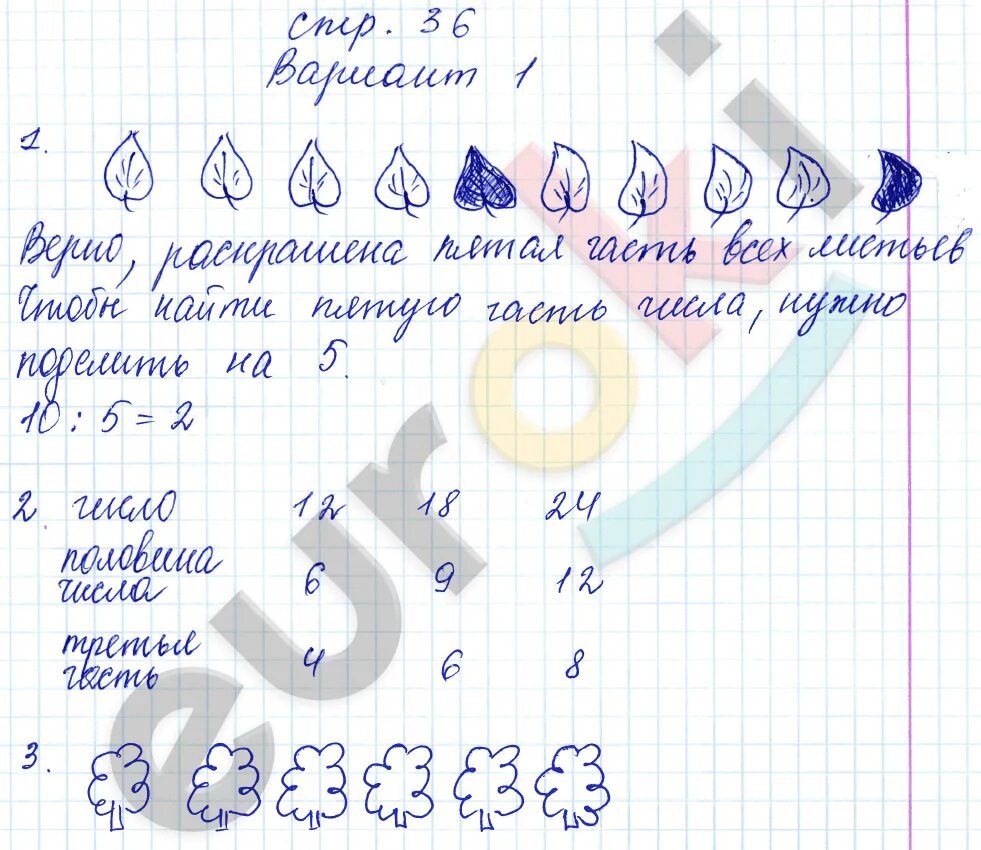 стр. 36
Вариант 1
1.
Верно, раскрашена пятая часть всех листьев
Чтобы найти пятую часть числа, нужно
поделить на 5.
10 : 5 = 2
2. число 12 18 24
половина
числа 6 9 12
третья
часть 4 6 8
3.
euroki